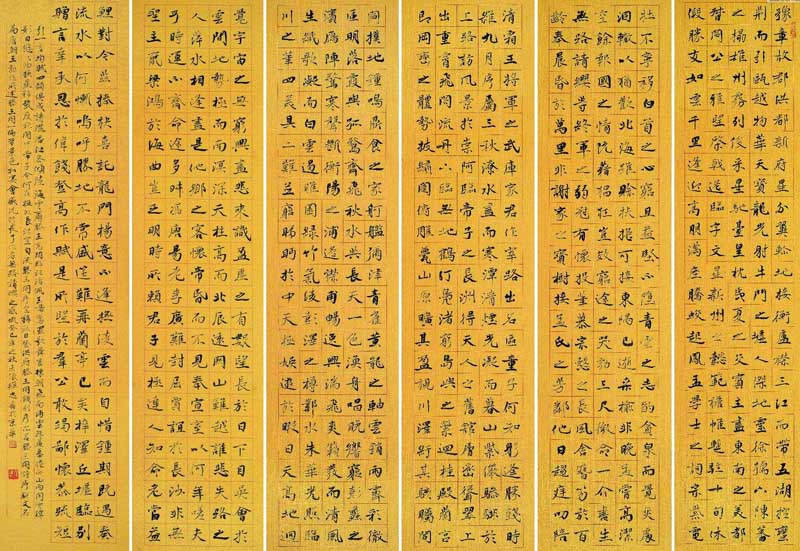 豫章故郡洪都新府星分翼軫地接衡廬襟三江而帶五湖控蠻
荊而引甌越物華天寶龍光射斗之墟人傑地靈徐孺下陳蕃
之榻雄州霧列俊采星馳臺隍枕夷夏之交賓主盡東南之美都
督閻公之雅望棨戟遙臨宇文新州之懿範襜帷暫駐十旬休
假勝友如雲千里逢迎高朋滿座騰蛟起鳳孟學士之詞宗紫電
移白首之心窮且益堅不墜青雲之志酌貪泉而覺爽處
涸轍以猶歡北海雖賒扶搖可接東隅已逝桑榆非晚孟嘗高潔
空餘報國之情阮籍猖狂豈效窮途之哭勃三尺微命一介書生
無路請纓等終軍之弱冠有懷投筆慕宗慤之長風舍簪笏於百
齡奉晨昏於萬里非謝家之寶樹接孟氏之芳鄰他日趨庭叨陪
清霜王將軍之武庫家君作宰路出名區童子何知躬逢勝餞時
維九月序屬三秋潦水盡而寒潭清煙光凝而暮山紫儼驂騑於
上路訪風景於崇阿臨帝子之長洲得天人之舊館層巒聳翠上
出重霄飛閣流丹下臨無地鶴汀鳧渚窮島嶼之縈迴桂殿蘭宮
即岡巒之體勢披繡闥俯雕甍山原曠其盈視川澤紆其駭矚閭
閻撲地鐘鳴鼎食之家舸艦彌津青雀黃龍之軸雲銷雨霽彩徹
區明落霞與孤鶩齊飛秋水共長天一色漁舟唱晚響窮彭蠡之
濱雁陣驚寒聲斷衡陽之浦遙襟甫暢逸興遄飛爽籟發而清風
生纖歌凝而白雲遏睢園綠竹氣凌彭澤之樽鄴水朱華光照臨
川之筆四美具二難並窮睇眄於中天極娛遊於暇日天高地迥
覺宇宙之無窮興盡悲來識盈虛之有數望長安於日下目吳會於
雲間地勢極而南溟深天柱高而北辰遠關山難越誰悲失路之
人萍水相逢盡是他鄉之客懷帝閽而不見奉宣室以何年嗟夫
時運不齊命途多舛馮唐易老李廣難封屈賈誼於長沙非無
聖主竄梁鴻於海曲豈乏明時所賴君子見機達人知命老當益
鯉對今茲捧袂喜託龍門楊意不逢撫凌雲而自惜鍾期既遇奏
流水以何慚嗚呼勝地不常盛筵難再蘭亭已矣梓澤丘墟臨別
贈言幸承恩於偉餞登高作賦是所望於群公敢竭鄙懷恭疏短
引一言均賦四韻俱成